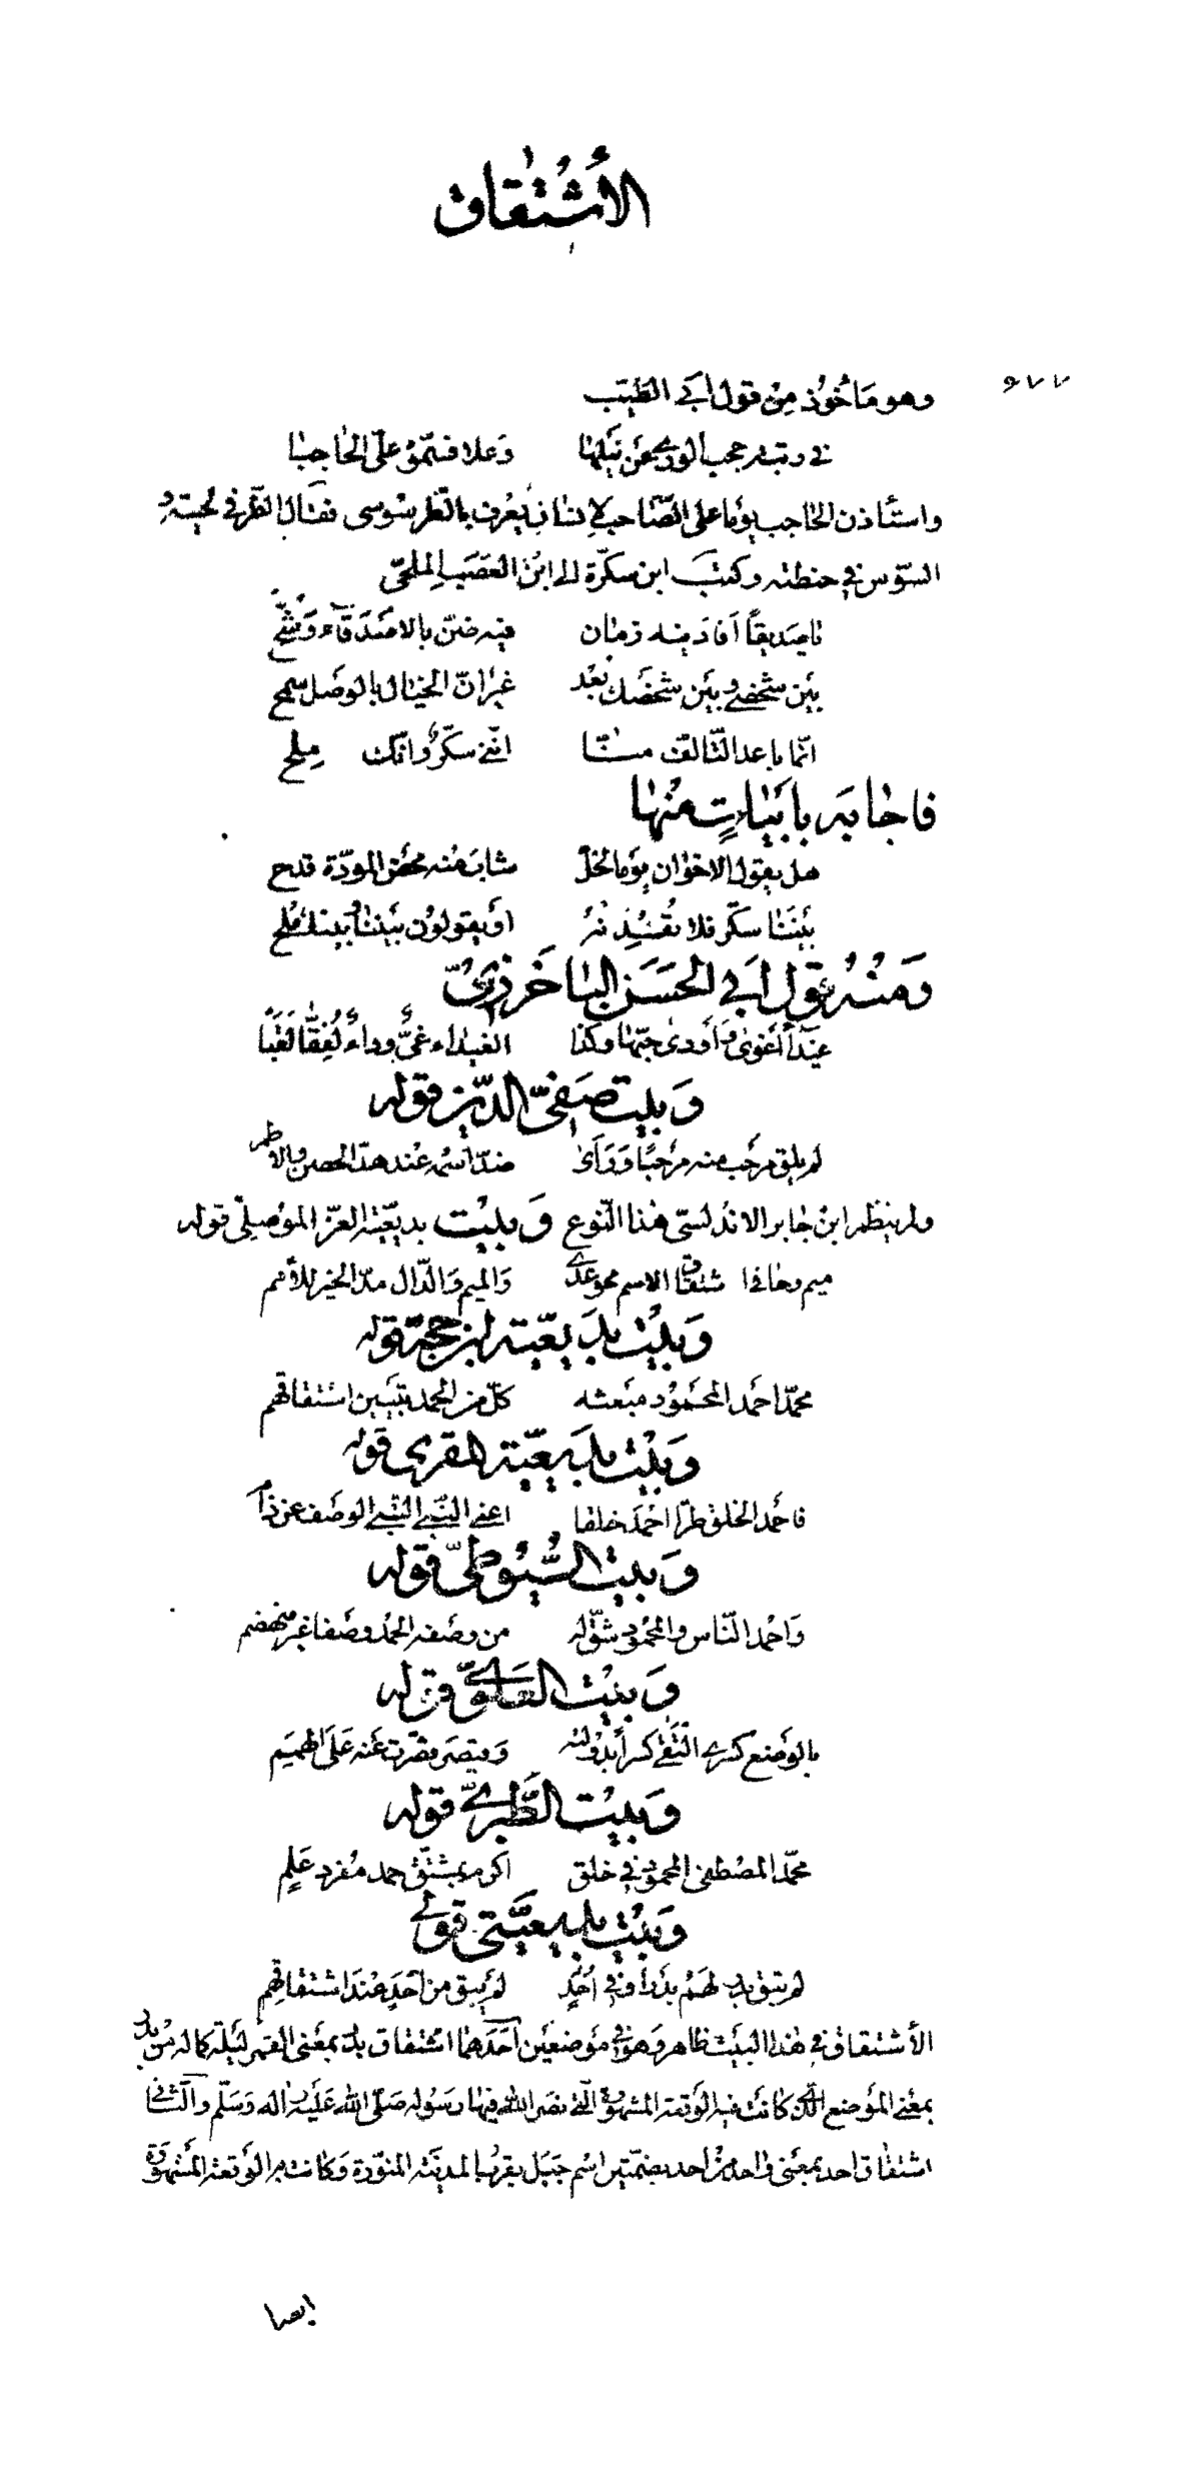 الأشتقاق
وهو مَأخُوذ مِنْ قول أبي الطَّيّب
٧٧
في رتبة حجب الورى عن نيلها وَعلا فسمّوه علىّ الحاجبا
واستأذن الحاجب يومًا على الصّاحب لإنسان يُعرف بالطرسوسى فقال الطّر في لحيته و
السّوس في حنطته وكتبَ ابن سكّرة الى ابن العصب الملحىّ
يا صديقًا أفادَنيه زمان فيه ضنّ بالاصدقآء وَشُحّ
بَيْن شخصي وبَيْن شخصك بُعْد غير انّ الخيال بالوصل سمح
انّما باعد التّألف منّا انّني سكّرٌ وانّك مِلح
فاجابه بابياتٍ منها
هل يقول الاخوان يومًا لخلّ شاب منه محض المودّة قدح
بَيْنَنا سكّر فلا تُفْسِدنْهُ أو يقولون بَيْننا وبَينك مُلح
وَمنْهُ قول ابي الحَسَن الباخَرْزيّ
وَبيت صَفيّ الدّين قوله
لم يلق مرحب منه مرحبًا وَرَأى ضدّ اسمه عند هدّ الحصن والاطم
ولم ينظم ابن جابر الاندلسىّ هذا النّوع وَبيْت بديعيّة العزّ الموصلىّ قوله
ميم وحا في اشتقاق الاسم محو عدى وَالميم وَالدّال مدّ الخير للأمم
وَبيْت بديعيّة ابن حجّة قوله
محمّد احمد المحمود مبعثه كلّ من الحمد تبيين اشتقاقهم
وَبيْت بديعيّة المقرى قوله
فاحمد الخلق طرّا احمدَ خلقا اعني النّبي النّبي الوصف عن ذأم
وَبيت السُّيُوطيّ قوله
وَاحمد النّاس والمحمود شقّ له من وصفه الحمد وصفا غير منهضم
وَبيْت العَلَويّ قوله
بالوضع كسرى التقى كسرا بدولته وَقيصر قصّرت عنه على الهمم
وَبيْت الطّبريّ قوله
محمّد المصطفى المحمود في خلق اكرم بمشتقّ حمد مفرد عَلَمٍ
وَبيْت بديعيَّتي قولي
لم يبق بدر لهم بدرًا وفي أُحُدٍ لم يبق من أَحَدٍ عند اشتقاقهم
الأشتقاق في هذا البيت ظاهر وَهو في مَوضعَين أَحَدهما اشتقاق بدر بمعنى القمر ليلة كماله من بدر
بمعنى الموضع الّذي كانت فيه الوَقعة المشهورة الّتي نصَر اللّه فيها رسُوله صَلّى اللّه عَلَيه وآله وَسَلّم وَالثّاني
اشتقاق احد بمعنى واحد من احد بضمّتين اسم جَبَل بقرب المدينة المنوّرة وَكانت به الوَقعة المشهورة
ايضا